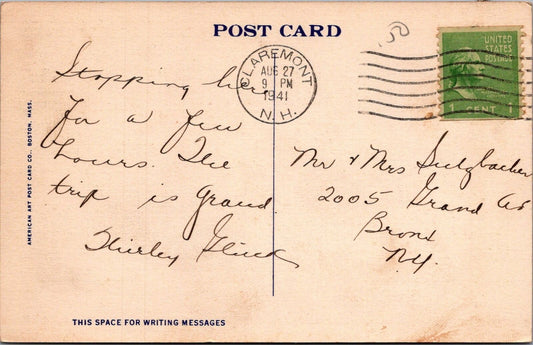 POST CARD
.50
CLAREMONT
AUG 27
9 PM
1941
N.H.
UNITED
STATES
POSTAGE
1 CENT 1
Stopping here
for a few
hours. The
trip is grand
Shirley
Mr & Mrs Sulzbacher
2005 Grand Av
Bronx
N.Y.
AMERICAN ART POST CARD CO., BOSTON, MASS.
THIS SPACE FOR WRITING MESSAGES